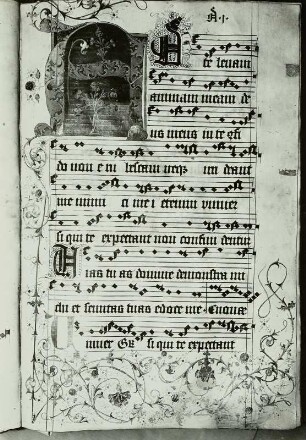 A · I ·
A
te levavi
animam meam de
us meus in te cōfi
do non e ru bescam neqȝ irri deant
me inimi ci mei etenim univer
si qui te expectant non confun dentur
Vias tu as domine demonstra mi
chi et semitas tuas edoce me Euouae
univer Gr si qui te expectant